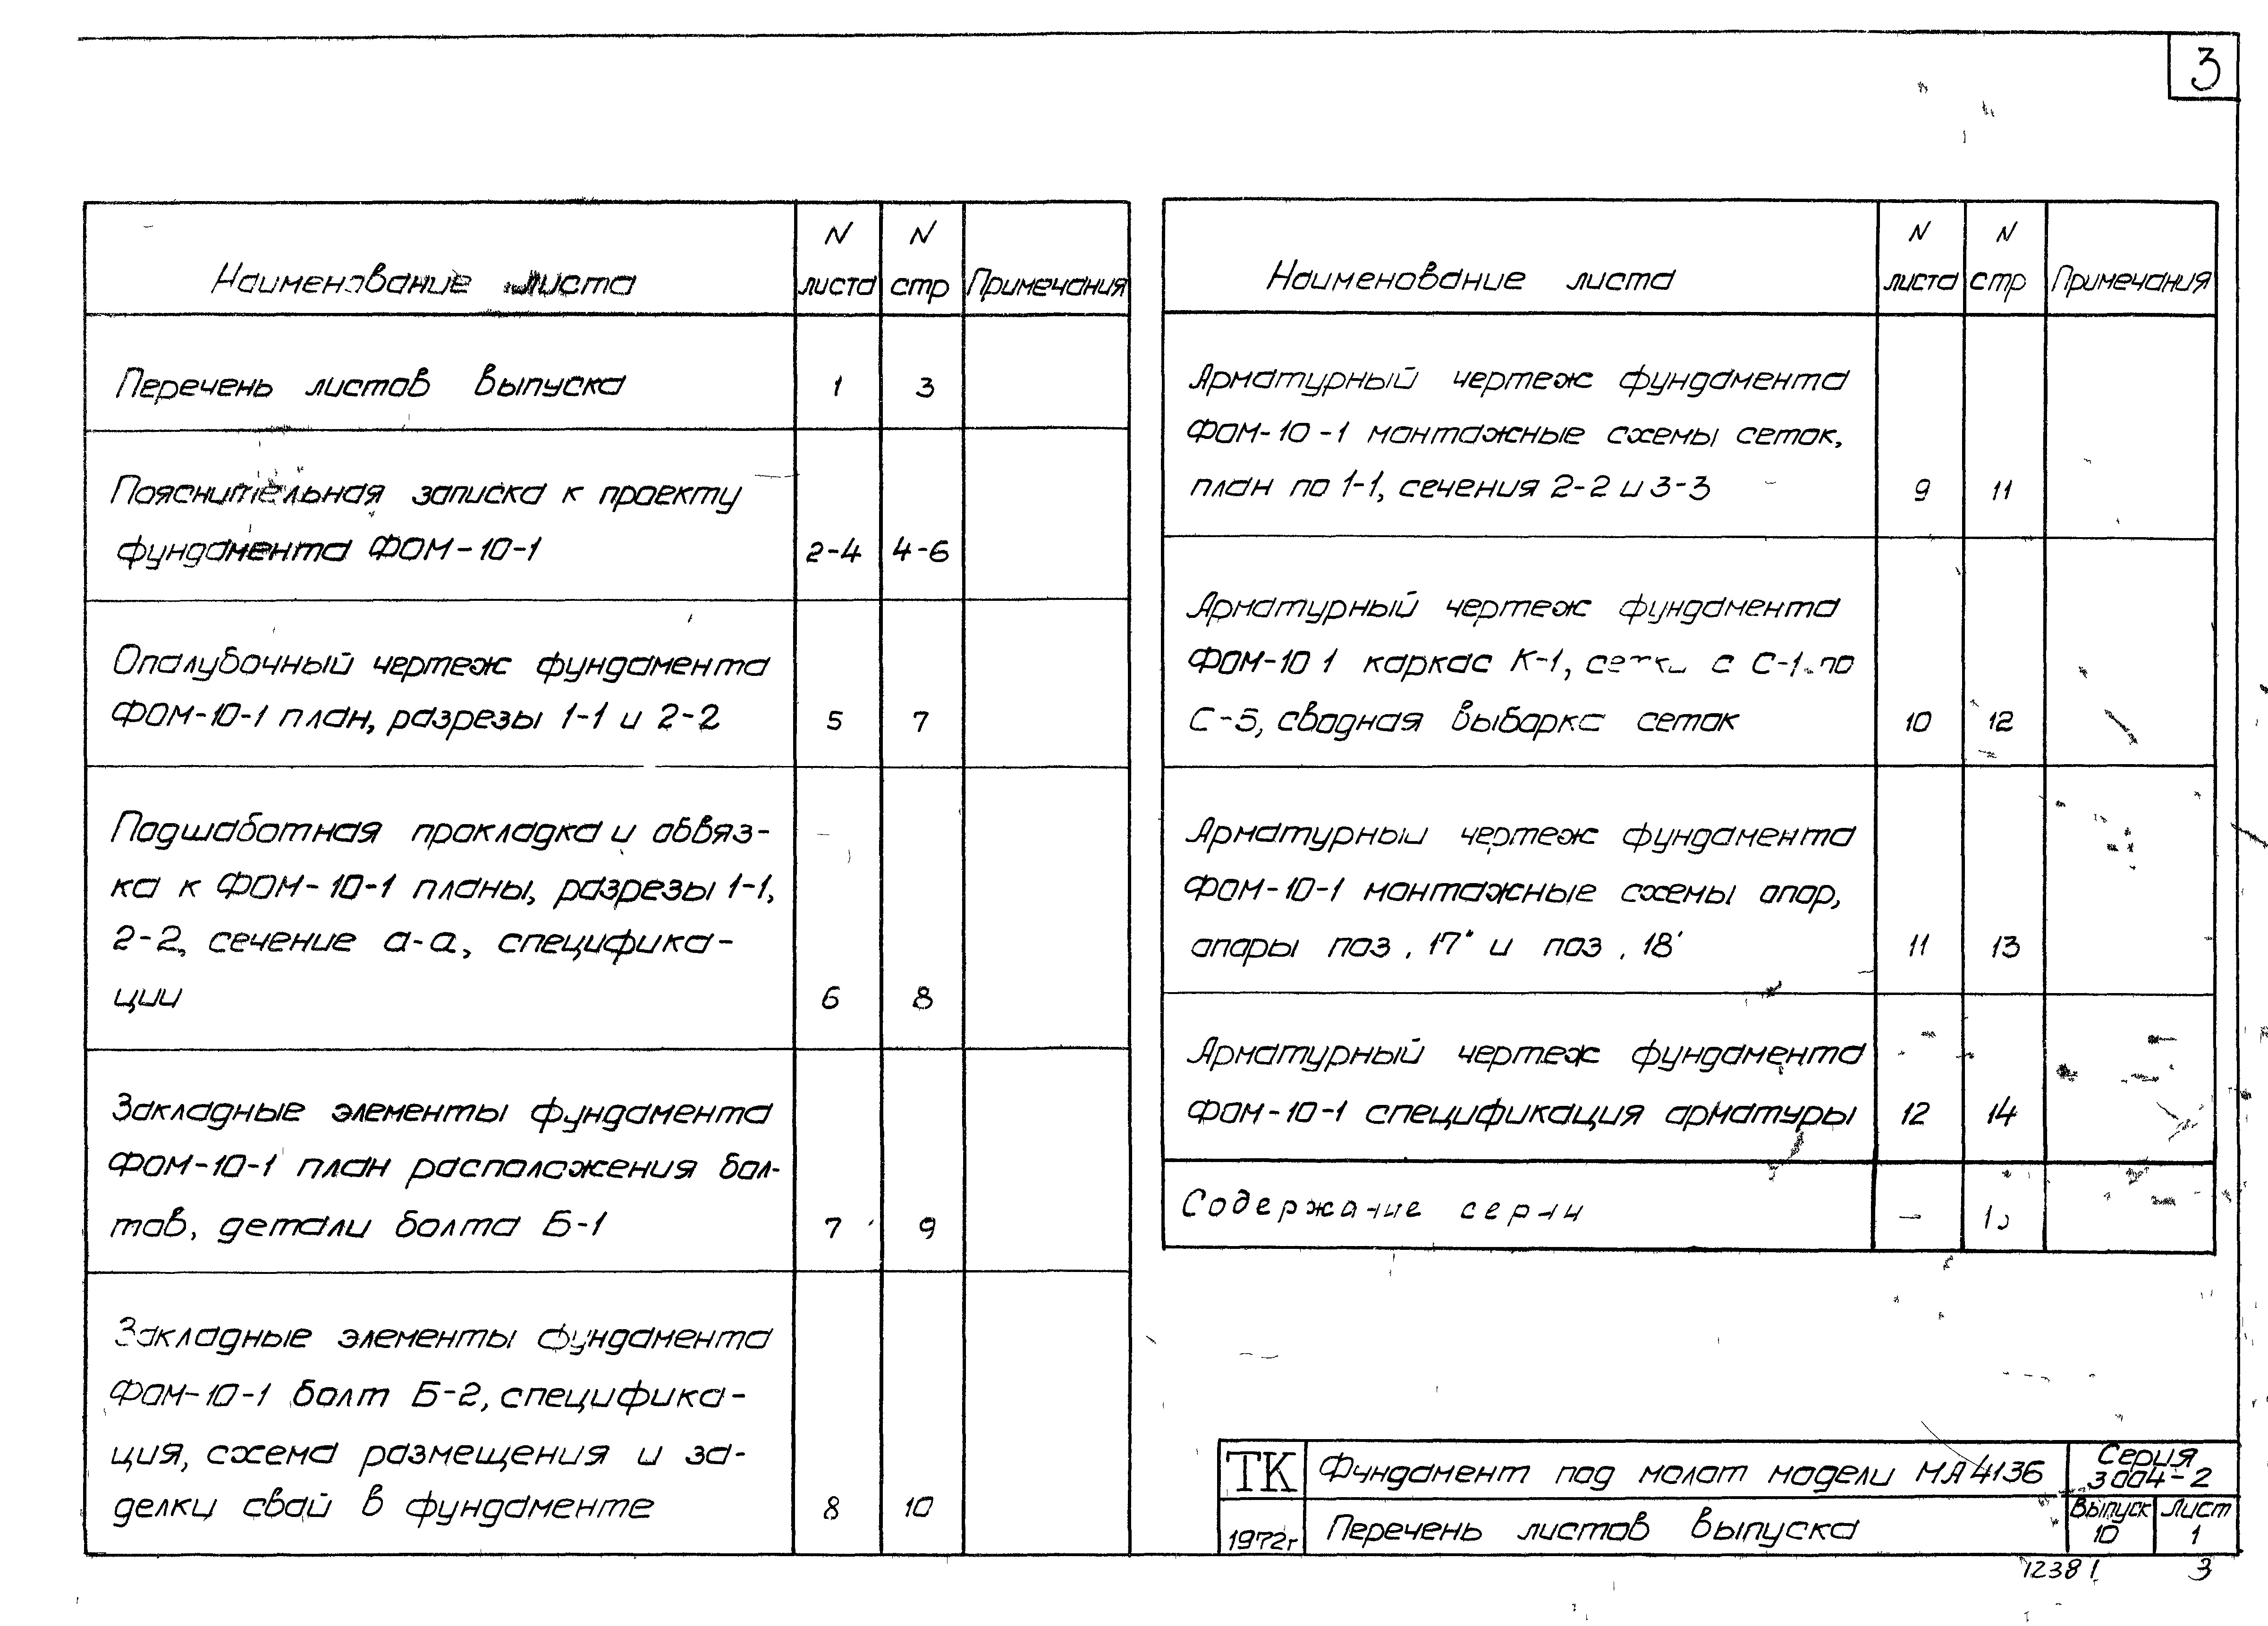 3
Наименование листа
N листа
N стр
Примечания
Перечень листов выпуска
1
3
Пояснительная записка к проекту
фундамента ФОМ-10-1
2-4
4-6
Опалубочный чертеж фундамента
ФОМ-10-1 план, разрезы 1-1 и 2-2
5
7
Подшаботная прокладка и обвяз-
ка к ФОМ-10-1 планы, разрезы 1-1,
2-2, сечение а-а, специфика-
ции
6
8
Закладные элементы фундамента
ФОМ-10-1 план расположения бол-
тов, детали болта Б-1
7
9
Закладные элементы фундамента
ФОМ-10-1 болт Б-2, специфика-
ция, схема размещения и за-
делки свай в фундаменте
8
10
Наименование листа
N листа
N стр
Примечания
Арматурный чертеж фундамента
ФОМ-10-1 монтажные схемы сеток,
план по 1-1, сечения 2-2 и 3-3
9
11
Арматурный чертеж фундамента
ФОМ-10 1 каркас К-1, сетки с С-1 по
С-5, сводная выборка сеток
10
12
Арматурный чертеж фундамента
ФОМ-10-1 монтажные схемы опор,
опоры поз. 17" и поз. 18'
11
13
Арматурный чертеж фундамента
ФОМ-10-1 спецификация арматуры
12
14
Содержание серии
-
ТК
Фундамент под молот модели МА4136
Серия
3 004-2
1972г
Перечень листов выпуска
Выпуск
10
Лист
1
12381
3